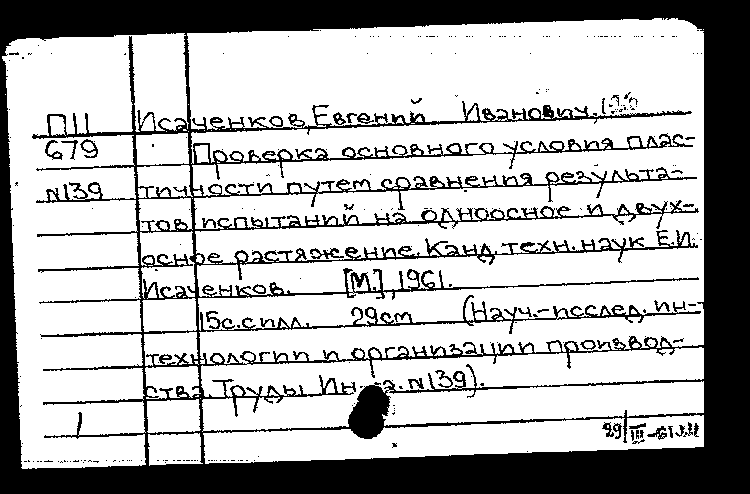 П11 Исаченков, Евгений Иванович,
679 Проверка основного условия плас-
№139 тичности путем сравнения результа-
тов испытаний на одноосное и двух-
осное растяжение. Канд. техн. наук Е.И.
Исаченков. [М.], 1961.
15с. с илл. 29cm (Науч.-исслед. ин-т
технологии и организации производ-
ства. Труды Ин-та. №139).
1